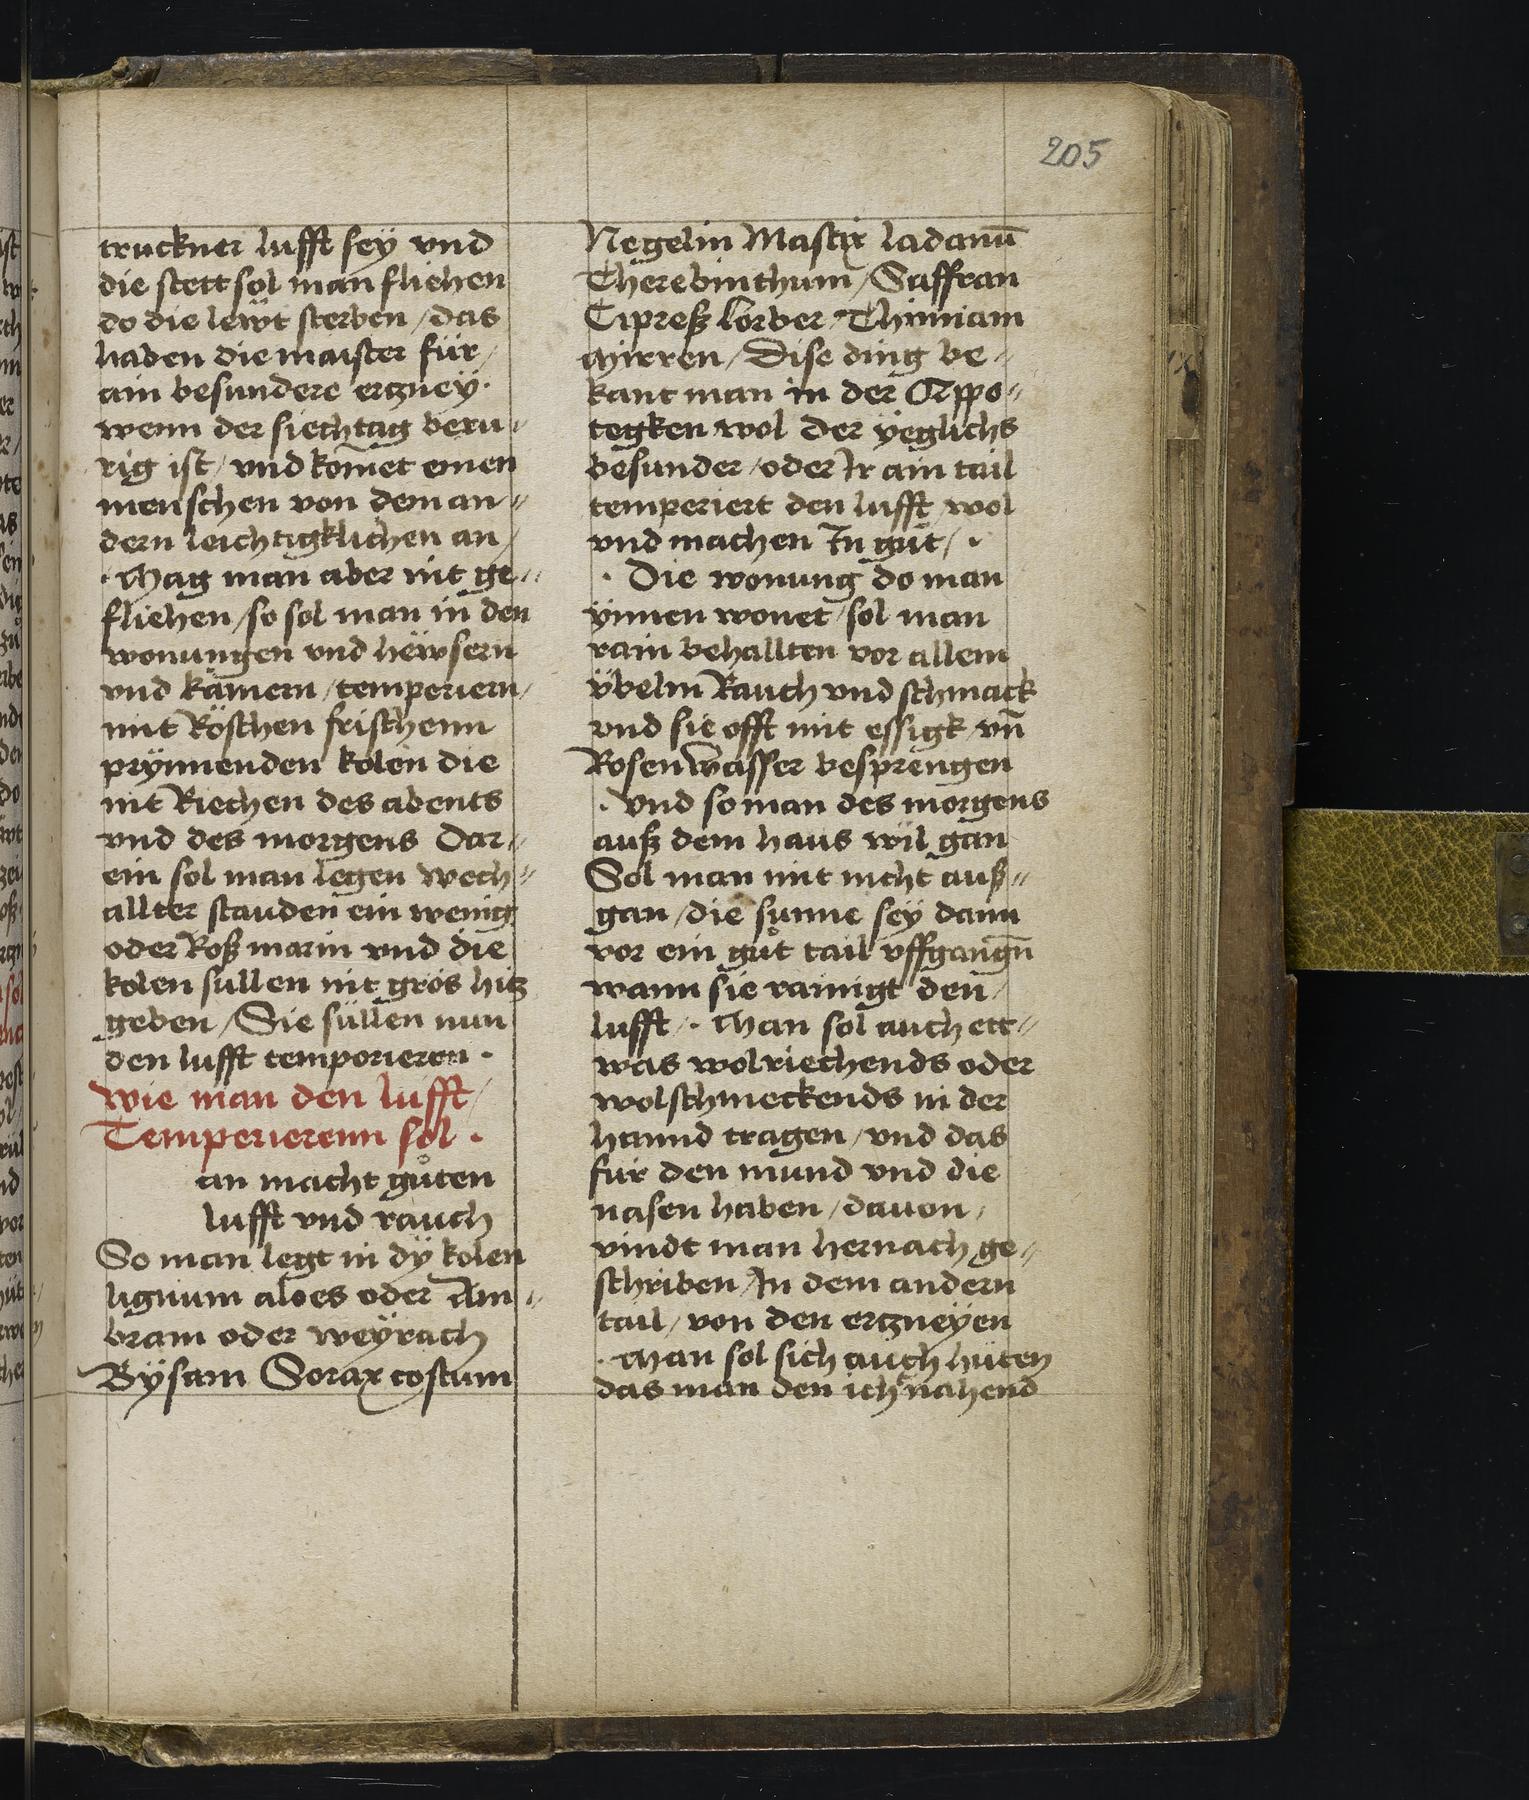 205
truckner lufft sey vnd
die stett sol man fliehen
do die lewt sterben / das
haben die maister für /
ain besundere ertzney ·
wenn der siechtag beru〃
rig ist / vnd komet einen
menschen von dem an〃
dern leichtigklichen an /
· Mag man aber nit ge〃
fliehen / so sol man in den
wonungen vnd hëwsern
vnd kamern / temperiern /
mit Röschen frischenn
prynnenden kolen die
nit Riechen des abents
vnd des morgens Dar〃
ein sol man legen wech〃
allter stauden ein wenig
oder Roß marin vnd die
kolen sullen nit gros hitz
geben / Sie süllen nun
den lufft temporieren ·
Wie man den lufft /
Temperierenn sol ·
an macht gůten
lufft vnd rauch
So man legt in dÿ kolen
lignum aloes oder Am〃
bram oder weÿrach
Bÿsam Sorax costum
Negelin Mastix ladanū
Therebinthum / Saffran
Cipreß lorber / Thimiam
Mirren / Dise ding be〃
kant man in der Appo〃
tegken wol Der ÿeglichs
besunder / oder Ir ain tail
temperiert den lufft wol
vnd machen In gůt / ·
· Die wonung do man
ÿnnen wonet / sol man
rain behallten vor allem
vbelm Rauch vnd schmack
vnd sie offt mit essigk / vn̄
Rosenwasser besprengen
· vnd so man des morgens
auß dem haus wil gan
Sol man mit nicht auß〃
gan / die sunne sey dann
vor ein gůt tail vffgangn̄
wann sie rainigt den /
lufft / · Man sol auch ett〃
was wolriechends oder
wolschmeckends in der
hannd tragen / vnd das
für den mund vnd die
nasen haben / dauon /
vindt man hernach ge〃
schriben / In dem andern
tail / von den ertzneÿen
· Man sol sich auch hüten
das man den ich nahend